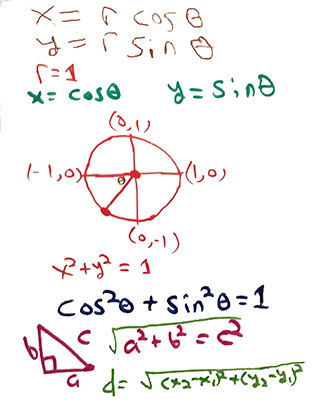 x = r cosθ
y = r sin θ
r = 1
x = cosθ y = sinθ
(0,1)
(-1,0) θ (1,0)
(0,-1)
x²+y² = 1
cos²θ + sin²θ = 1
b c a √a²+b² = c²
d = √(x₂-x₁)²+(y₂-y₁)²